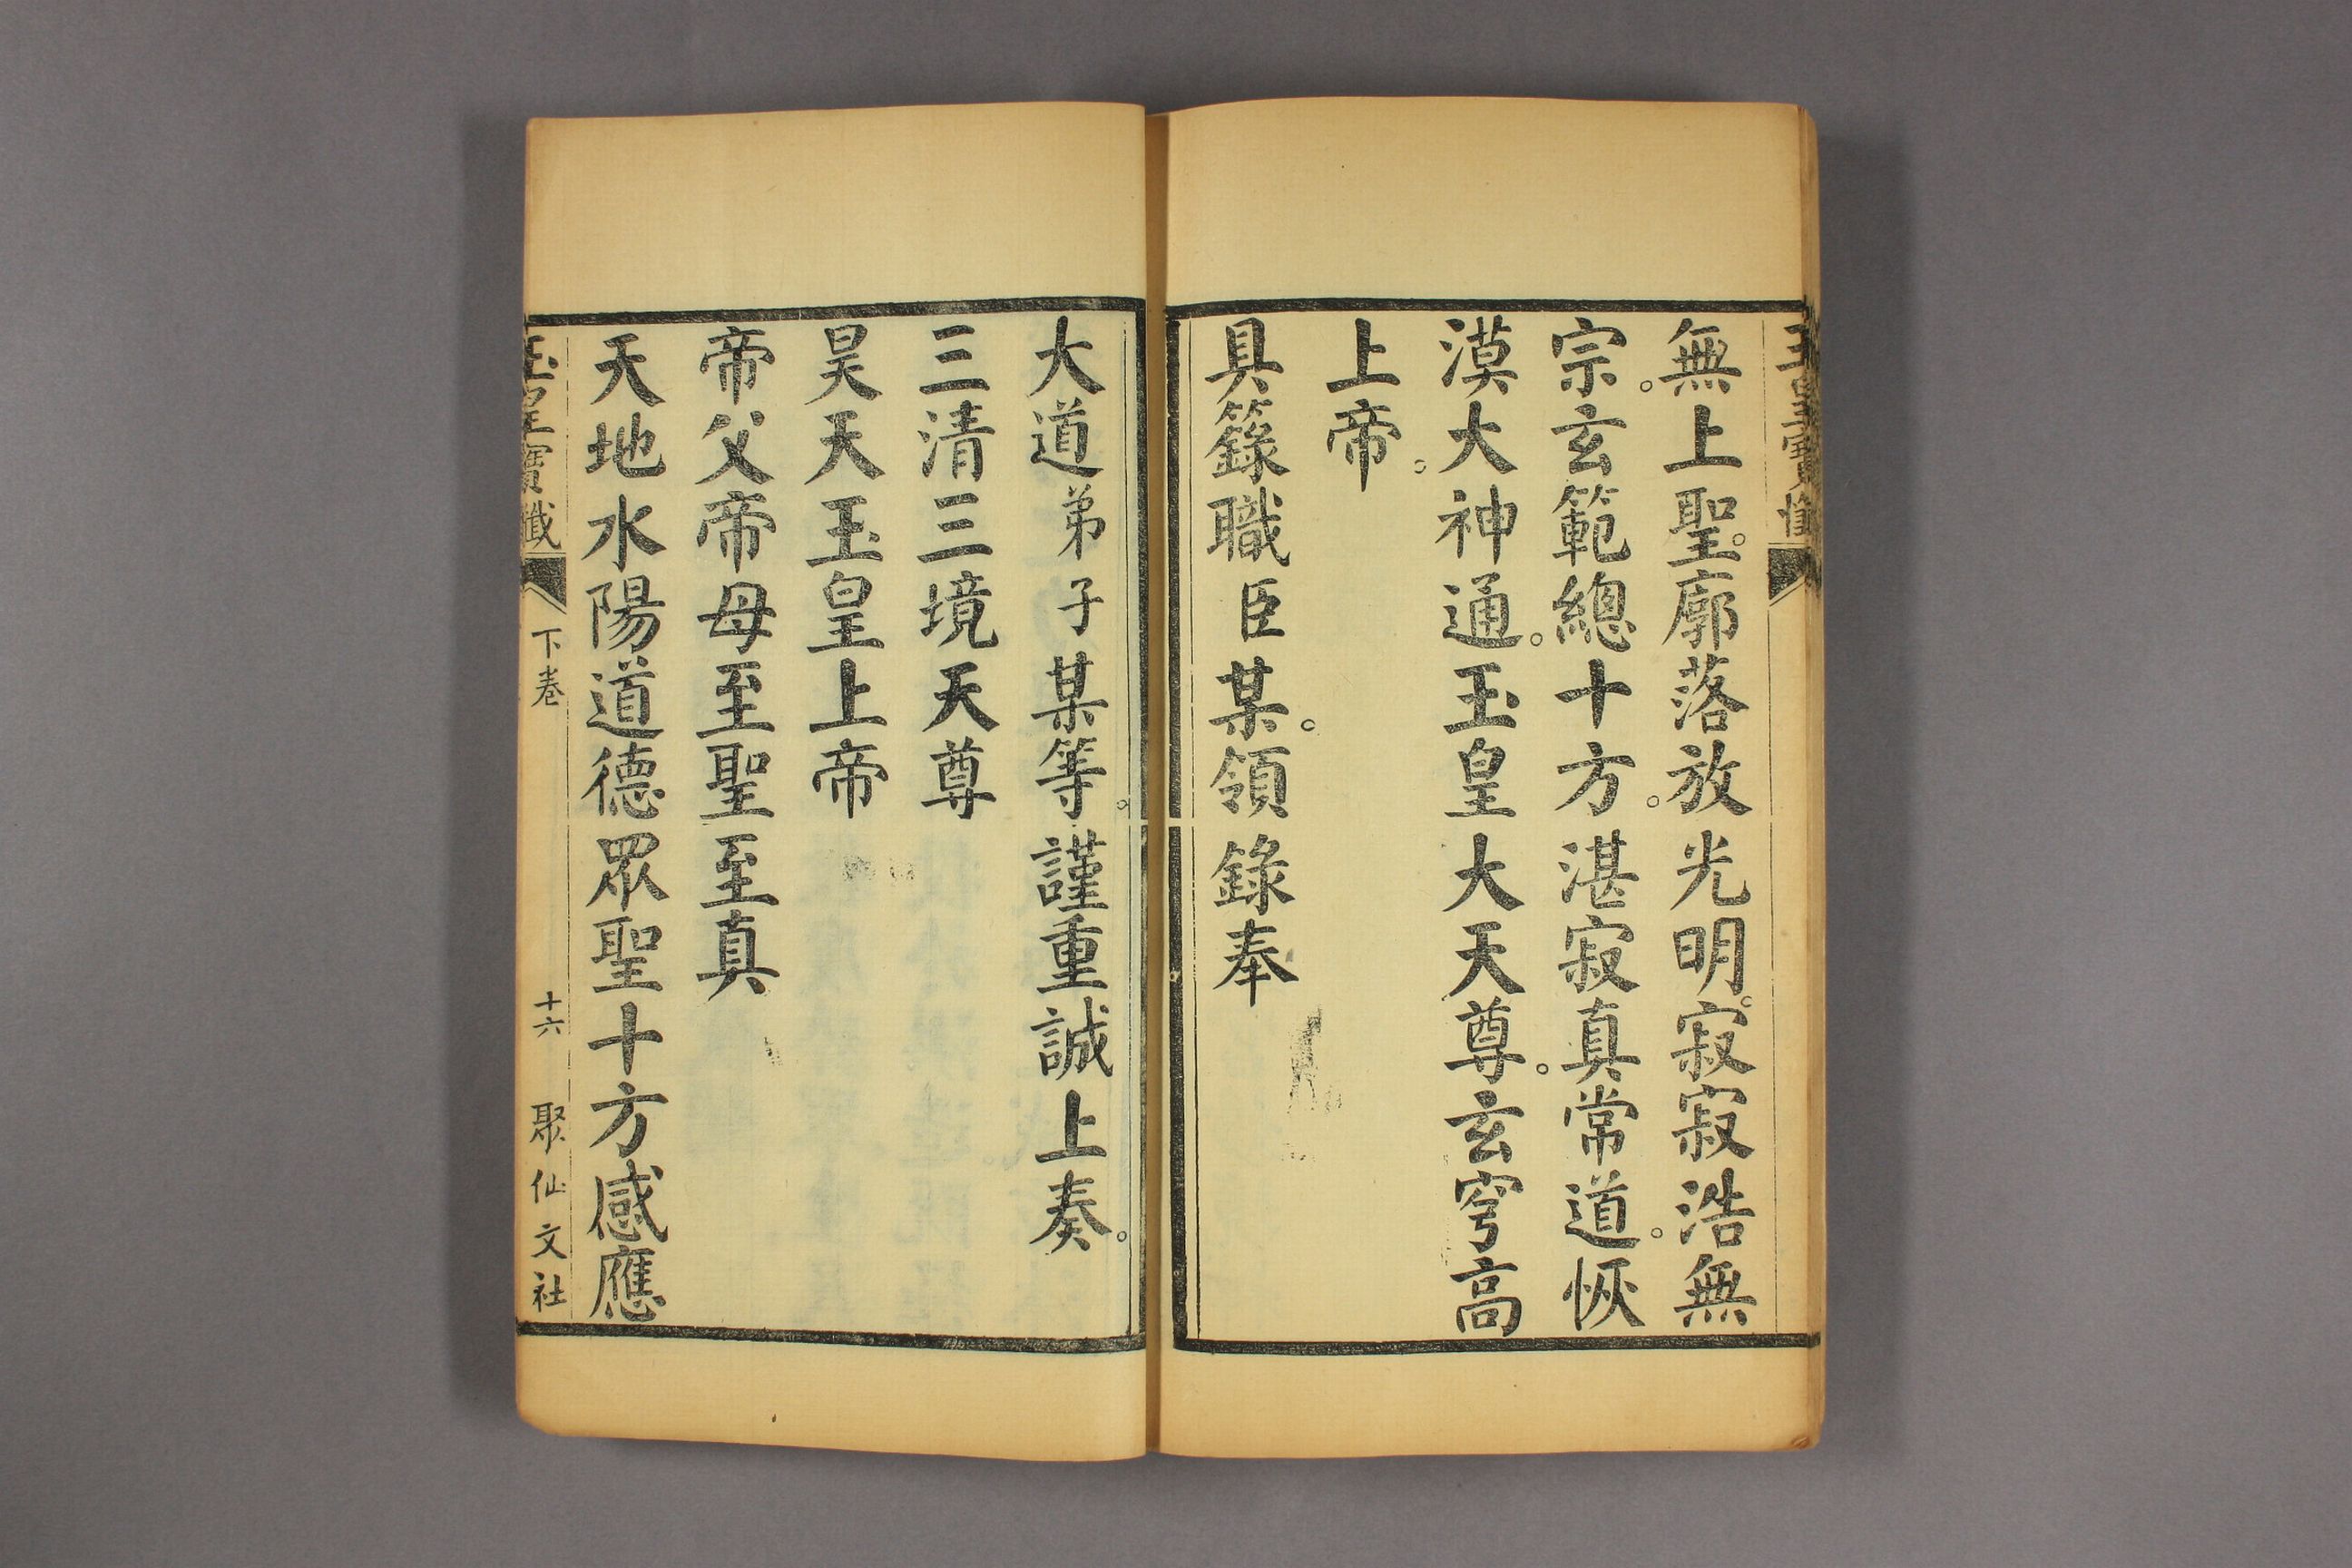 玉皇寶懺
無上聖。廓落放光明。寂寂浩無
宗。玄範總十方。湛寂真常道。恢
漠大神通。玉皇大天尊。玄穹高
上帝。
具籙職臣某。領錄奉
大道弟子某等。謹重誠上奏。
三清三境天尊
昊天玉皇上帝
帝父帝母至聖至真
天地水陽道德眾聖十方感應
玉皇寶懺 下卷 十六 聚仙文社